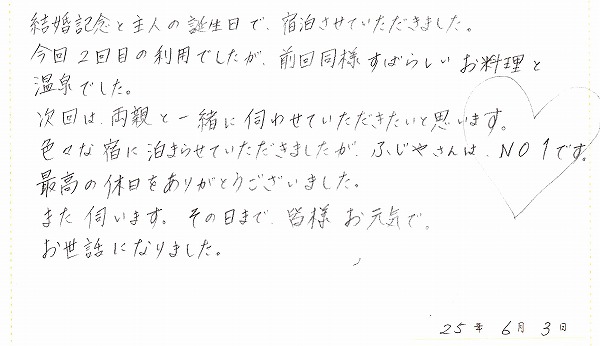 結婚記念と主人の誕生日で、宿泊させていただきました。
今回2回目の利用でしたが、前回同様すばらしいお料理と
温泉でした。
次回は、両親と一緒に伺わせていただきたいと思います。
色々な宿に泊まらせていただきましたが、ふじやさんは、NO1です。
最高の休日をありがとうございました。
また伺います。その日まで、皆様お元気で。
お世話になりました。
25年6月3日